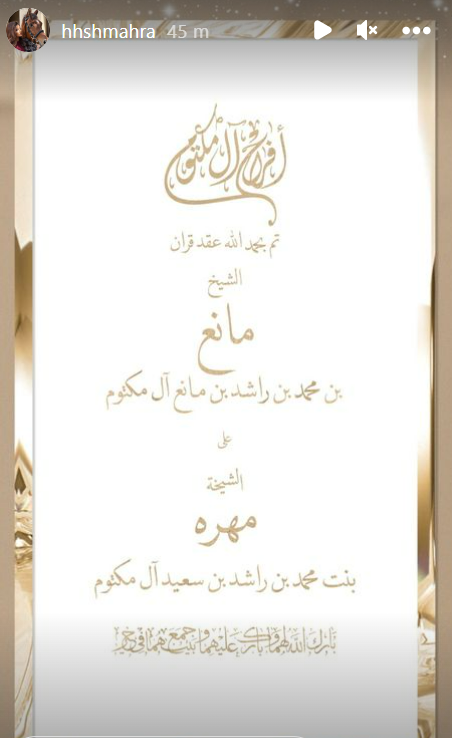 hhshmahra 45 m
أفراح آل مكتوم
تم بحمد الله عقد قران
الشيخ
مانع
بن محمد بن راشد بن مانع آل مكتوم
على
الشيخة
مهره
بنت محمد بن راشد بن سعيد آل مكتوم
بارك الله لهما وبارك عليهما وجمع بينهما في خير